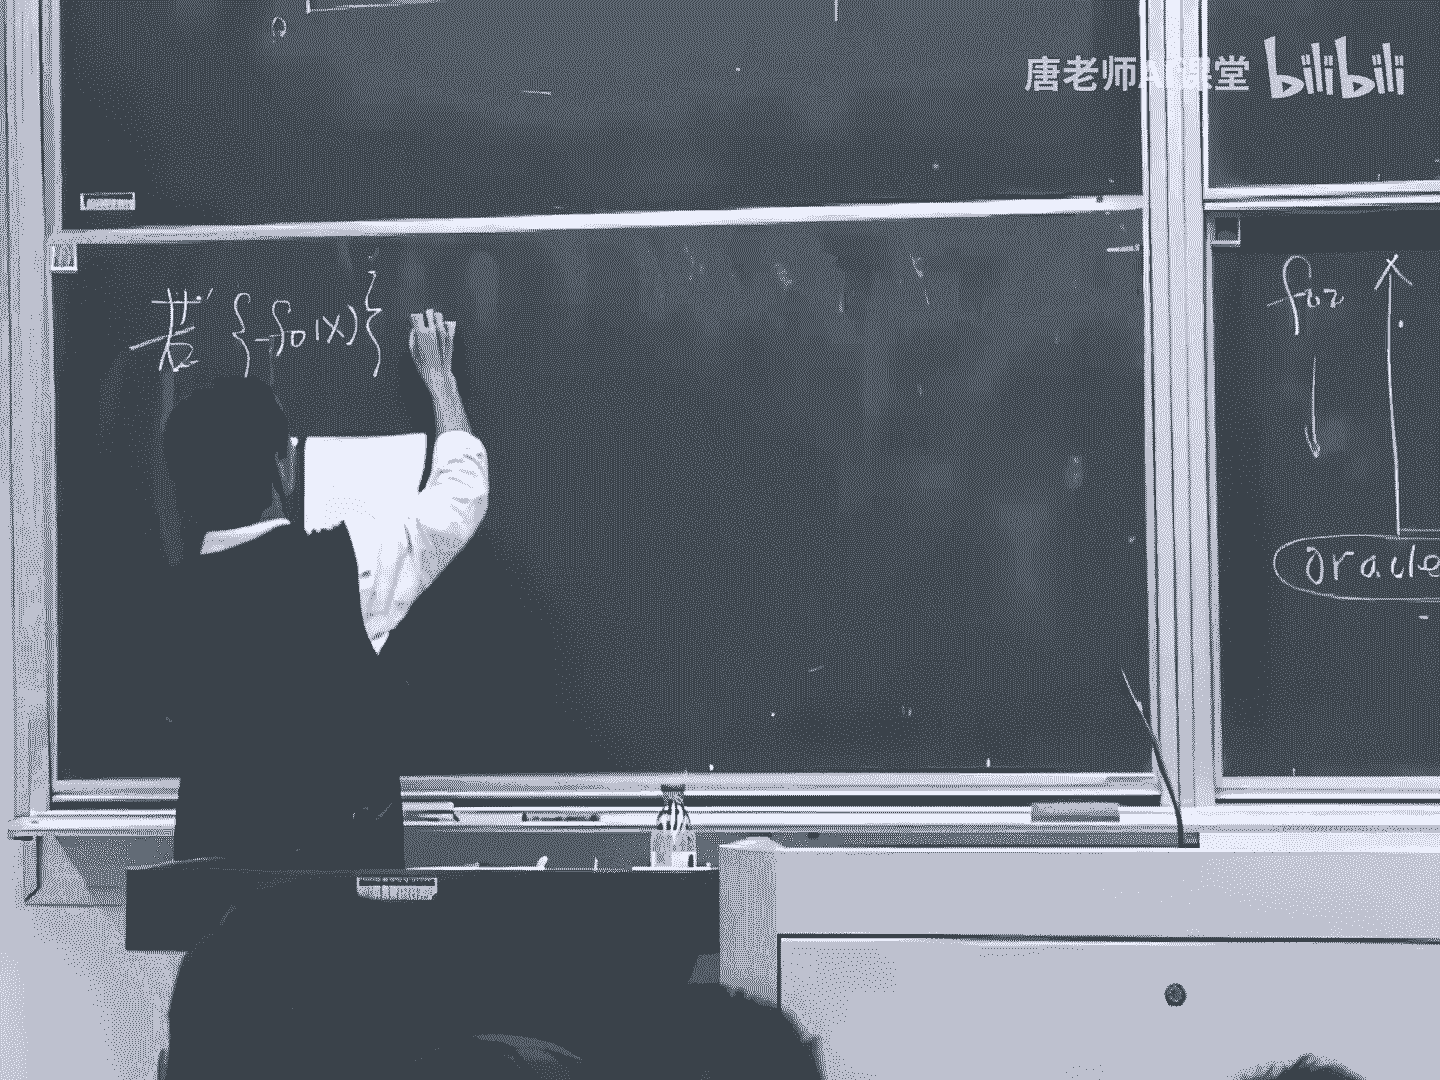 唐老师AI课堂 bilibili
若 {f₀(x)}
oracle